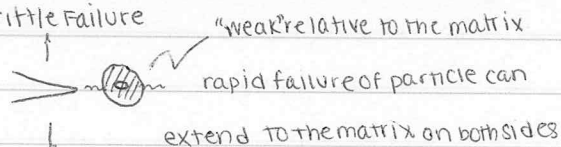 ittle Failure
"weak" relative to the matrix
rapid failure of particle can
extend to the matrix on both sides